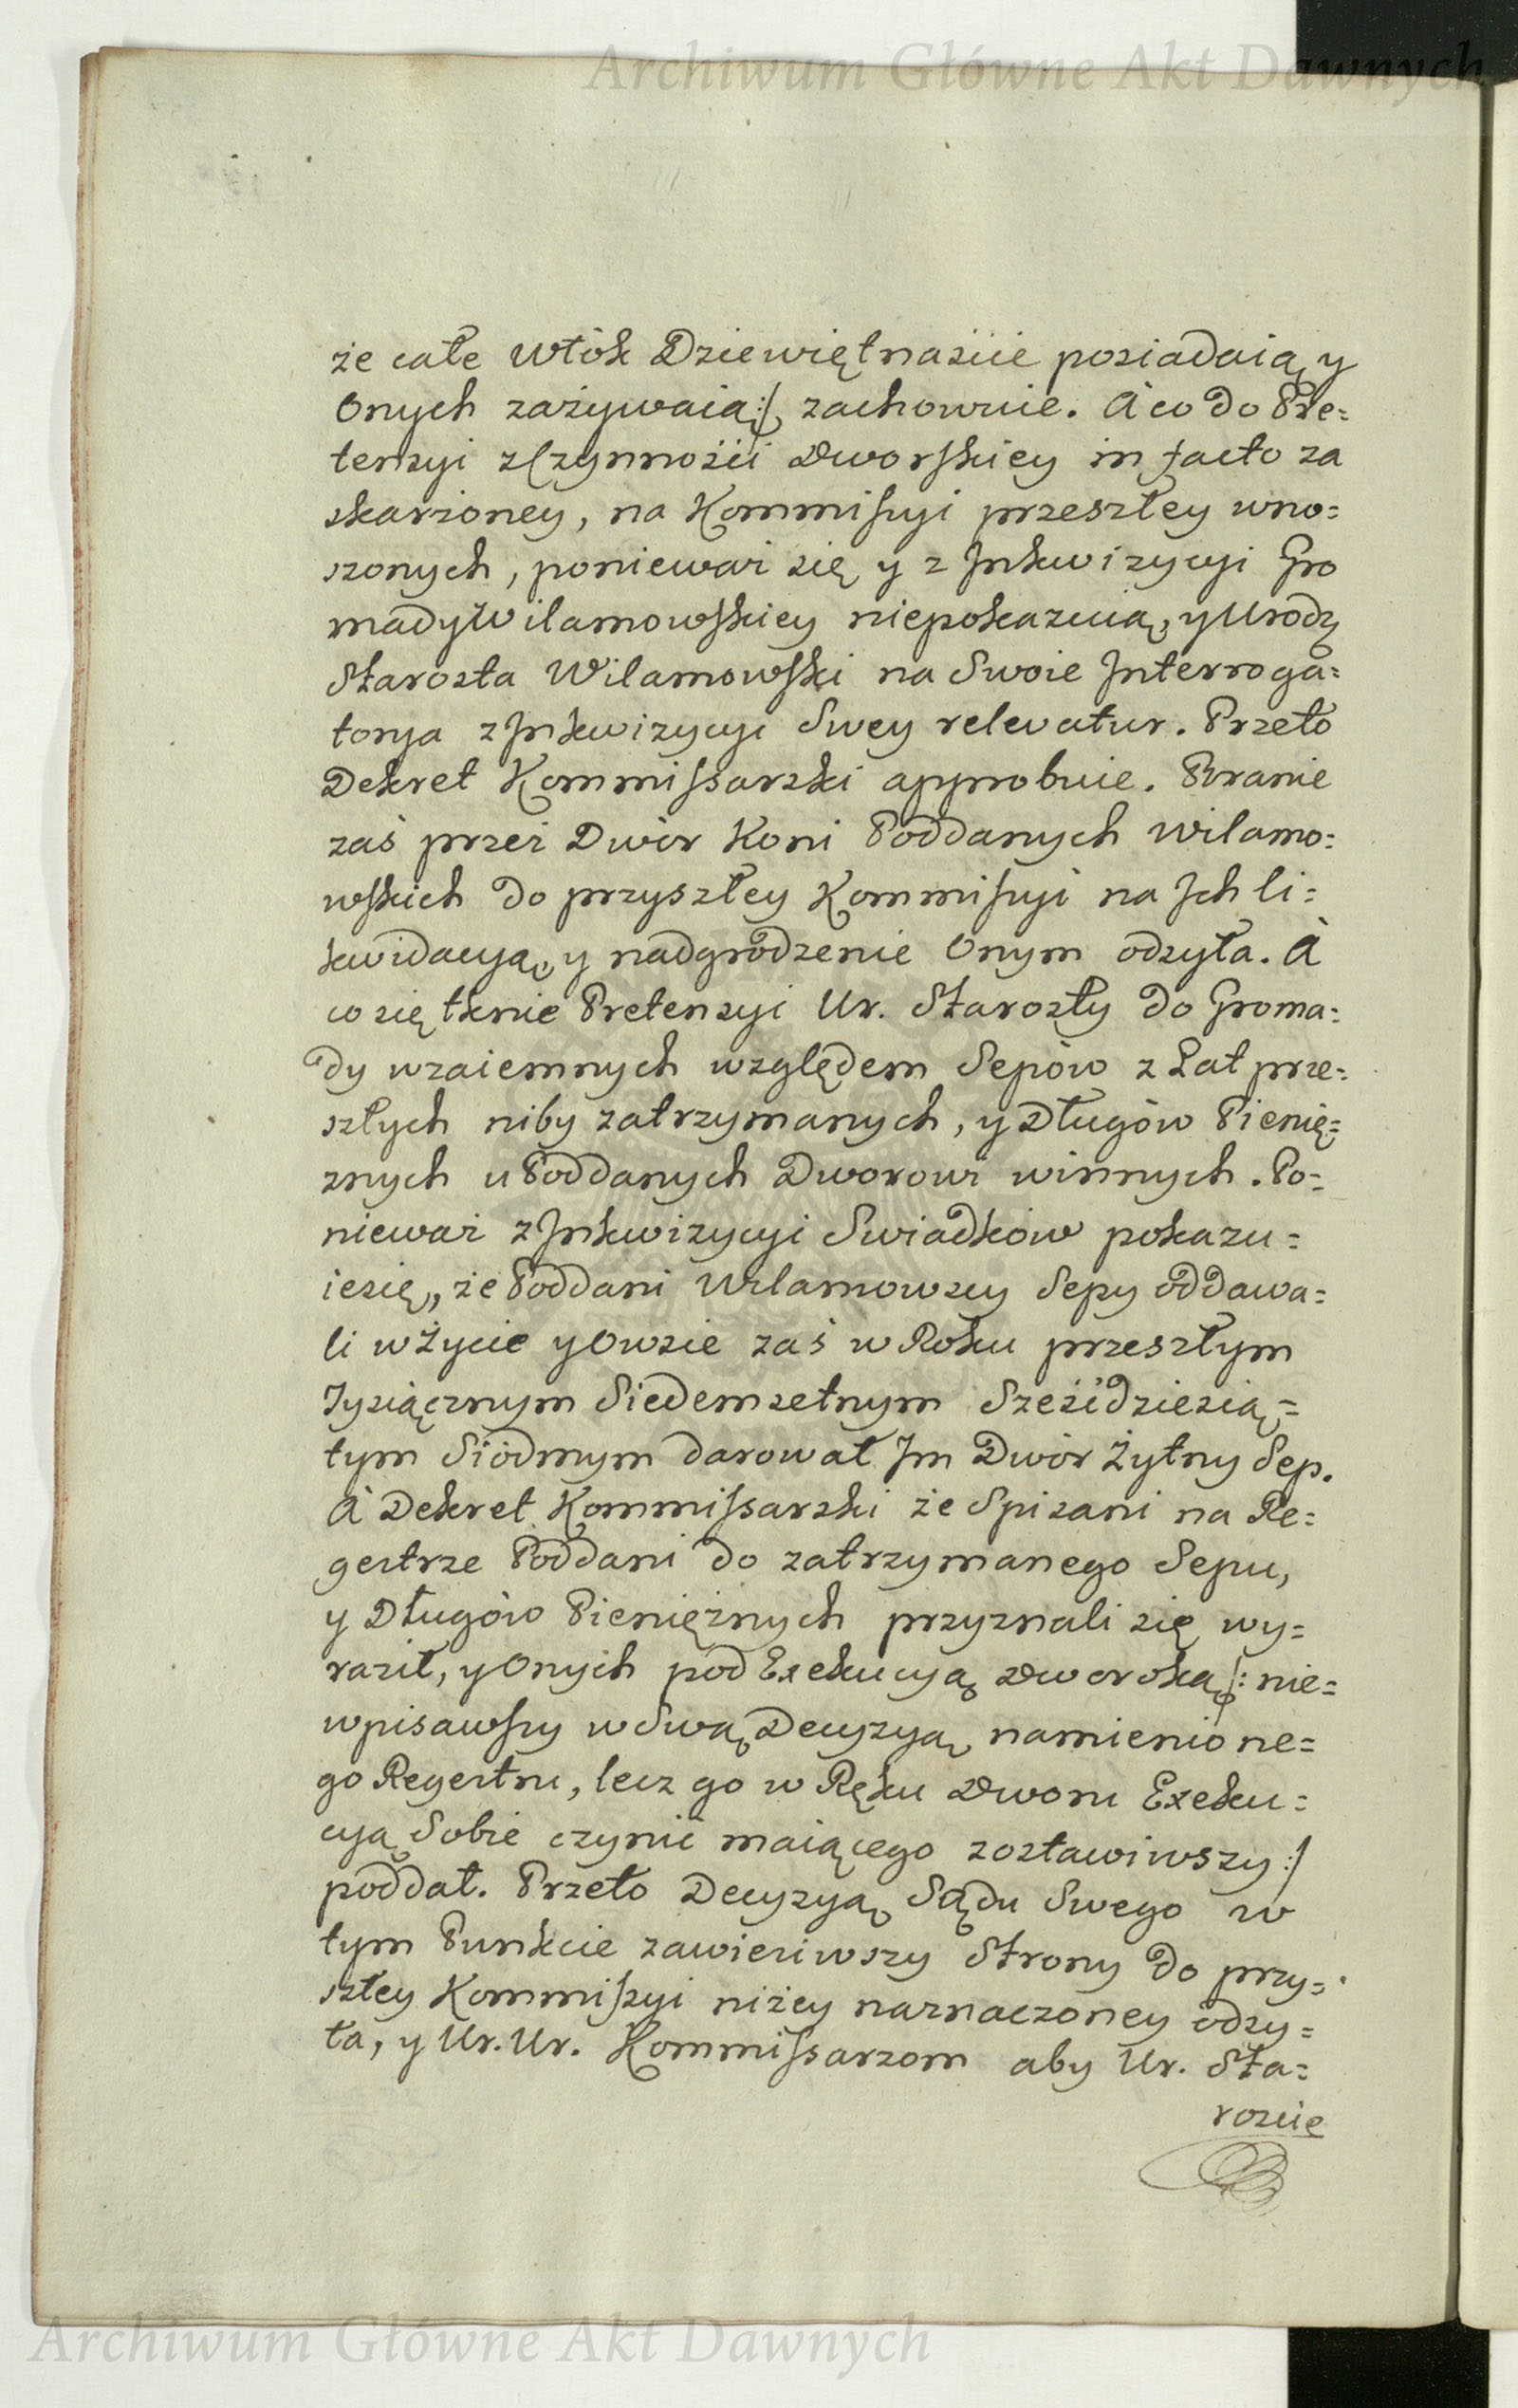 Archiwum Główne Akt Dawnych
że całe Włók Dziewiętnaście posiadaią y
Onych zażywaią :/ zachowuie. A co do Pre=
tensyi z Czynności Dworskiey in facto za
skarżoney, na Kommissyi przeszłey wno=
szonych, ponieważ się y z Inkwizycyi Gro
mady Wilamowskiey niepokazuią, y Urodz
Starosta Wilamowski na Swoie Interroga=
torya z Inkwizycyi Swey relevatur. Przeto
Dekret Kommissarski approbuie. Branie
zaś przez Dwór Koni Poddanych Wilamo=
wskich do przyszłey Kommissyi na Ich li=
kwidacyą, y nadgrodzenie Onym odsyła. A
co się tknie Pretensyi Ur. Starosty do Groma=
dy wzaiemnych względem Sepów z Lat prze=
szłych niby zatrzymanych, y Długów Pienię=
znych u Poddanych Dworowi winnych. Po=
nieważ z Inkwizycyi Swiadków pokazu=
iesię, że Poddani Wilamowscy Sepy oddawa=
li w Życie y Owsie zaś w Roku przeszłym
Tysiącznym Siedemsetnym Sześćdziesią=
tym Siódmym darował Im Dwór Żytny Sep.
A Dekret Kommissarski że Spisani na Re=
gestrze Poddani do zatrzymanego Sepu,
y Długów Pieniężnych przyznali się wy=
raził, y Onych pod Exekucyą Dworską /: nie=
wpisawszy w Swą Decyzyą namienione=
go Regestru, lecz go w Ręku Dworu Exeku=
cyą Sobie czynić maiącego zostawiwszy :/
poddał. Przeto Decyzyą Sądu Swego w
tym Punkcie zawiesiwszy Strony do przy=
szłey Kommissyi niżey naznaczoney odsy=
ła, y Ur. Ur. Kommissarzom aby Ur. Sta=
roście
Archiwum Główne Akt Dawnych